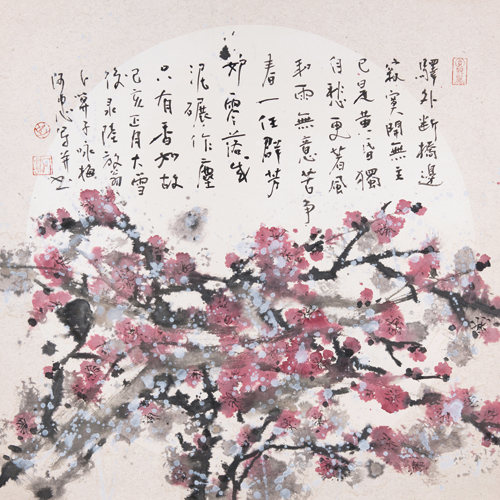 驛外斷橋邊
寂寞開無主
已是黃昏獨
自愁更著風
和雨無意苦爭
春一任群芳
妒零落成
泥碾作塵
只有香如故
己亥正月大雪
後录陸放翁
卜算子咏梅